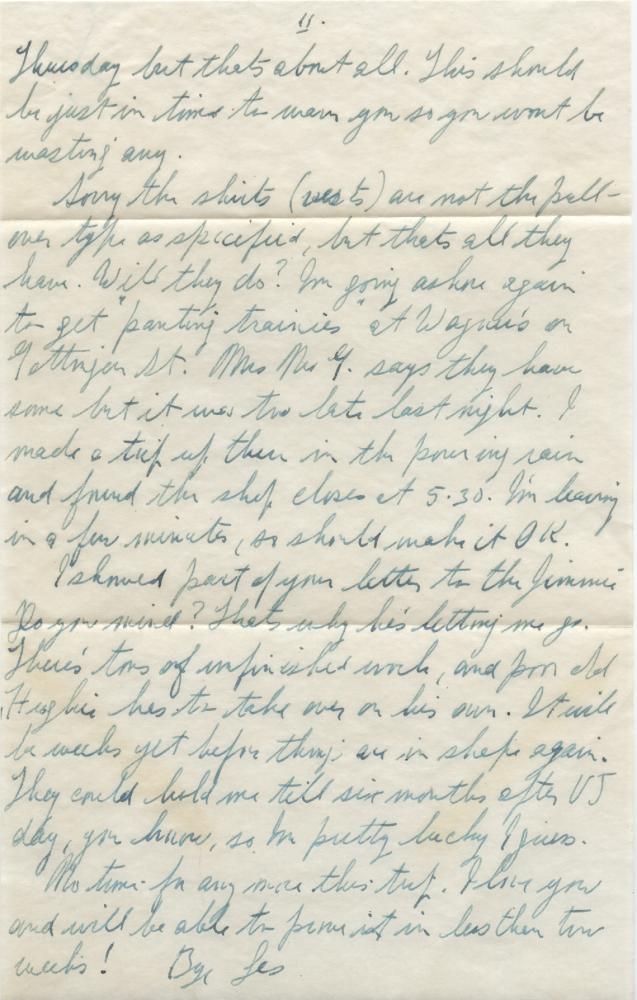 11.
Thursday but thats about all. This should
be just in time to warn you so you wont be
wasting any.
Sorry the shirts (vests) are not the pull-
over type as specified, but thats all they
have. Will they do? Im going ashore again
to get "panting trainies" at Wagner's on
Gottingen St. Mrs Mc G. says they have
some but it was too late last night. I
made a trip up there in the pouring rain
and found the shop closes at 5.30. I'm leaving
in a few minutes, so should make it OK.
I showed part of your letter to the Jimmie
Do you mind? Thats why he's letting me go.
There's tons of unfinished work, and poor old
Hughie has to take over on his own. It will
be weeks yet before things are in shape again.
They could hold me till six months after VJ
day, you know, so Im pretty lucky I guess.
No time for any more this trip. I love you
and will be able to prove it in less than two
weeks! Bye Les